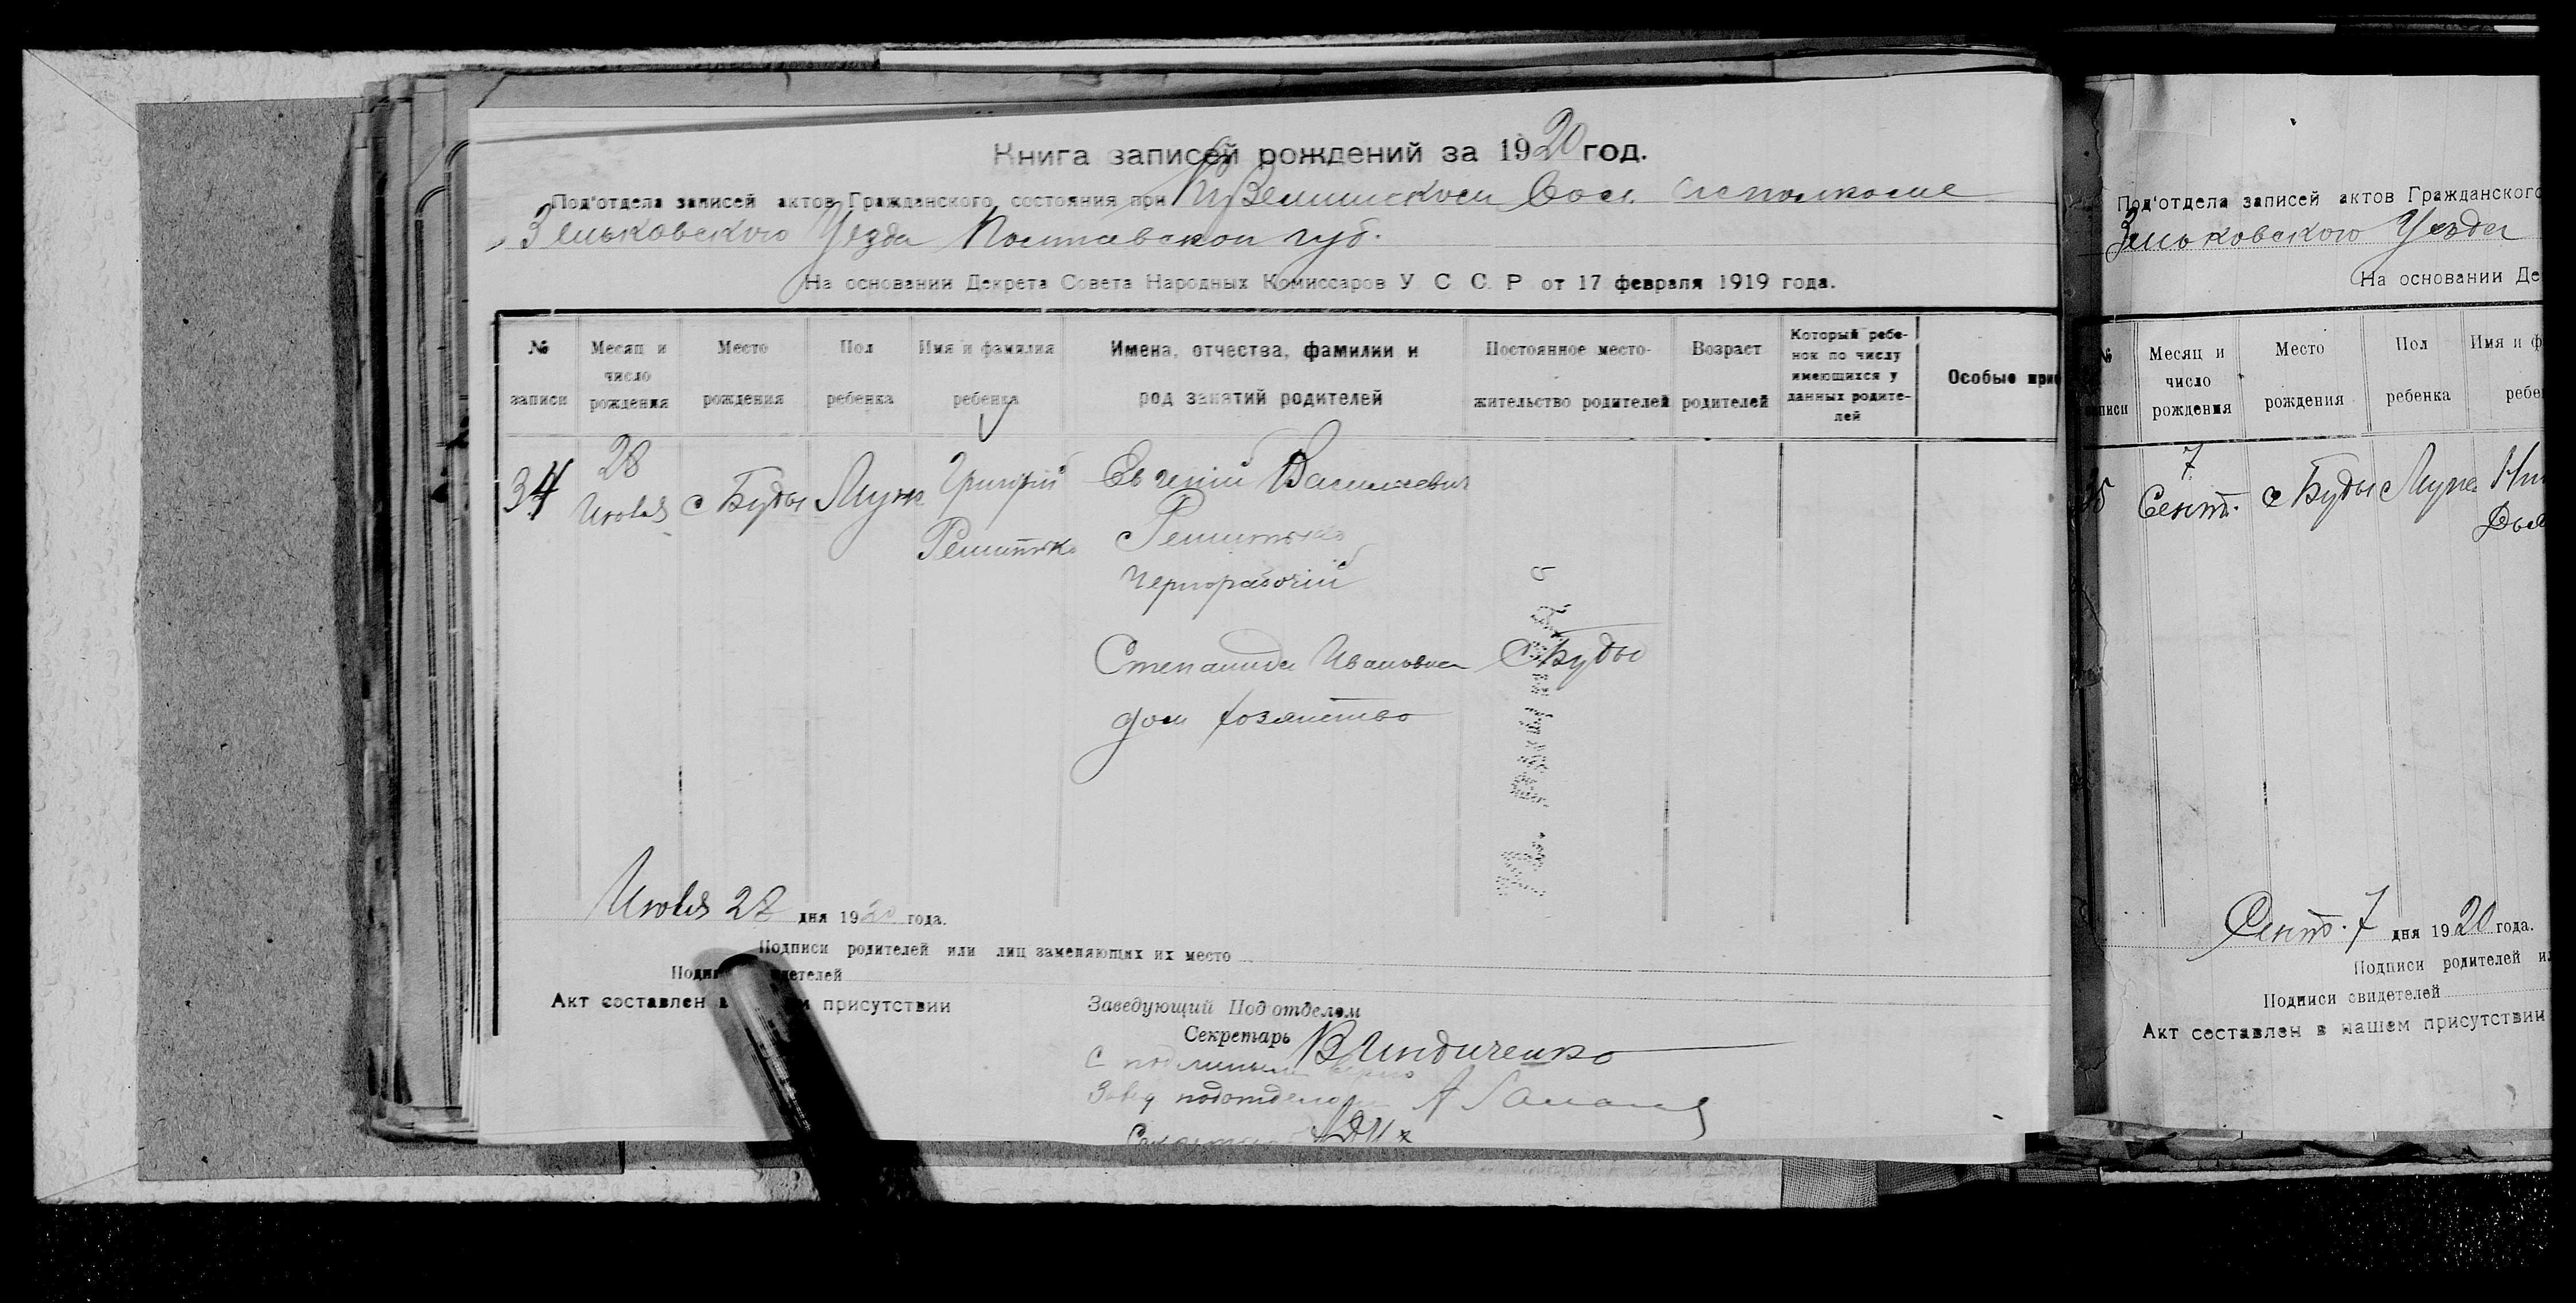 Книга записей рождений за 1920 год.
Под'отдела записей актов Гражданского состояния при
Зеньковского Уезда Полтавской губ.
На основании Декрета Совета Народных Комиссаров У С С. Р от 17 февраля 1919 года.
№ записи
Месяц и число рождения
Место рождения
Пол ребенка
Имя и фамилия ребенка
Имена, отчества, фамилии и род занятий родителей
Постоянное место-жительство родителей
Возраст родителей
Который ребе-нок по числу имеющихся у данных родите-лей
Особые при
34
28
с Буды
Муж
Григорій
Евгеній Васильевич
Чернорабочій
Степанида Ивановна
с Буды
дом хозяйство
дня 1920 года.
Подписи родителей или лиц заменяющих их место
Акт составлен в присутствии
Заведующий Под'отделом
Секретарь
С подлинным верно
Завед подотделом
Под'отдела записей актов Гражданского
Зеньковского Уезда
На основании Де
Месяц и число рождения
Место рождения
Пол ребенка
Имя и ф
7
Сент.
с Буды
Муж
Сент. 7 дня 1920 года.
Подписи родителей ил
Подписи свидетелей
Акт составлен в нашем присутствии